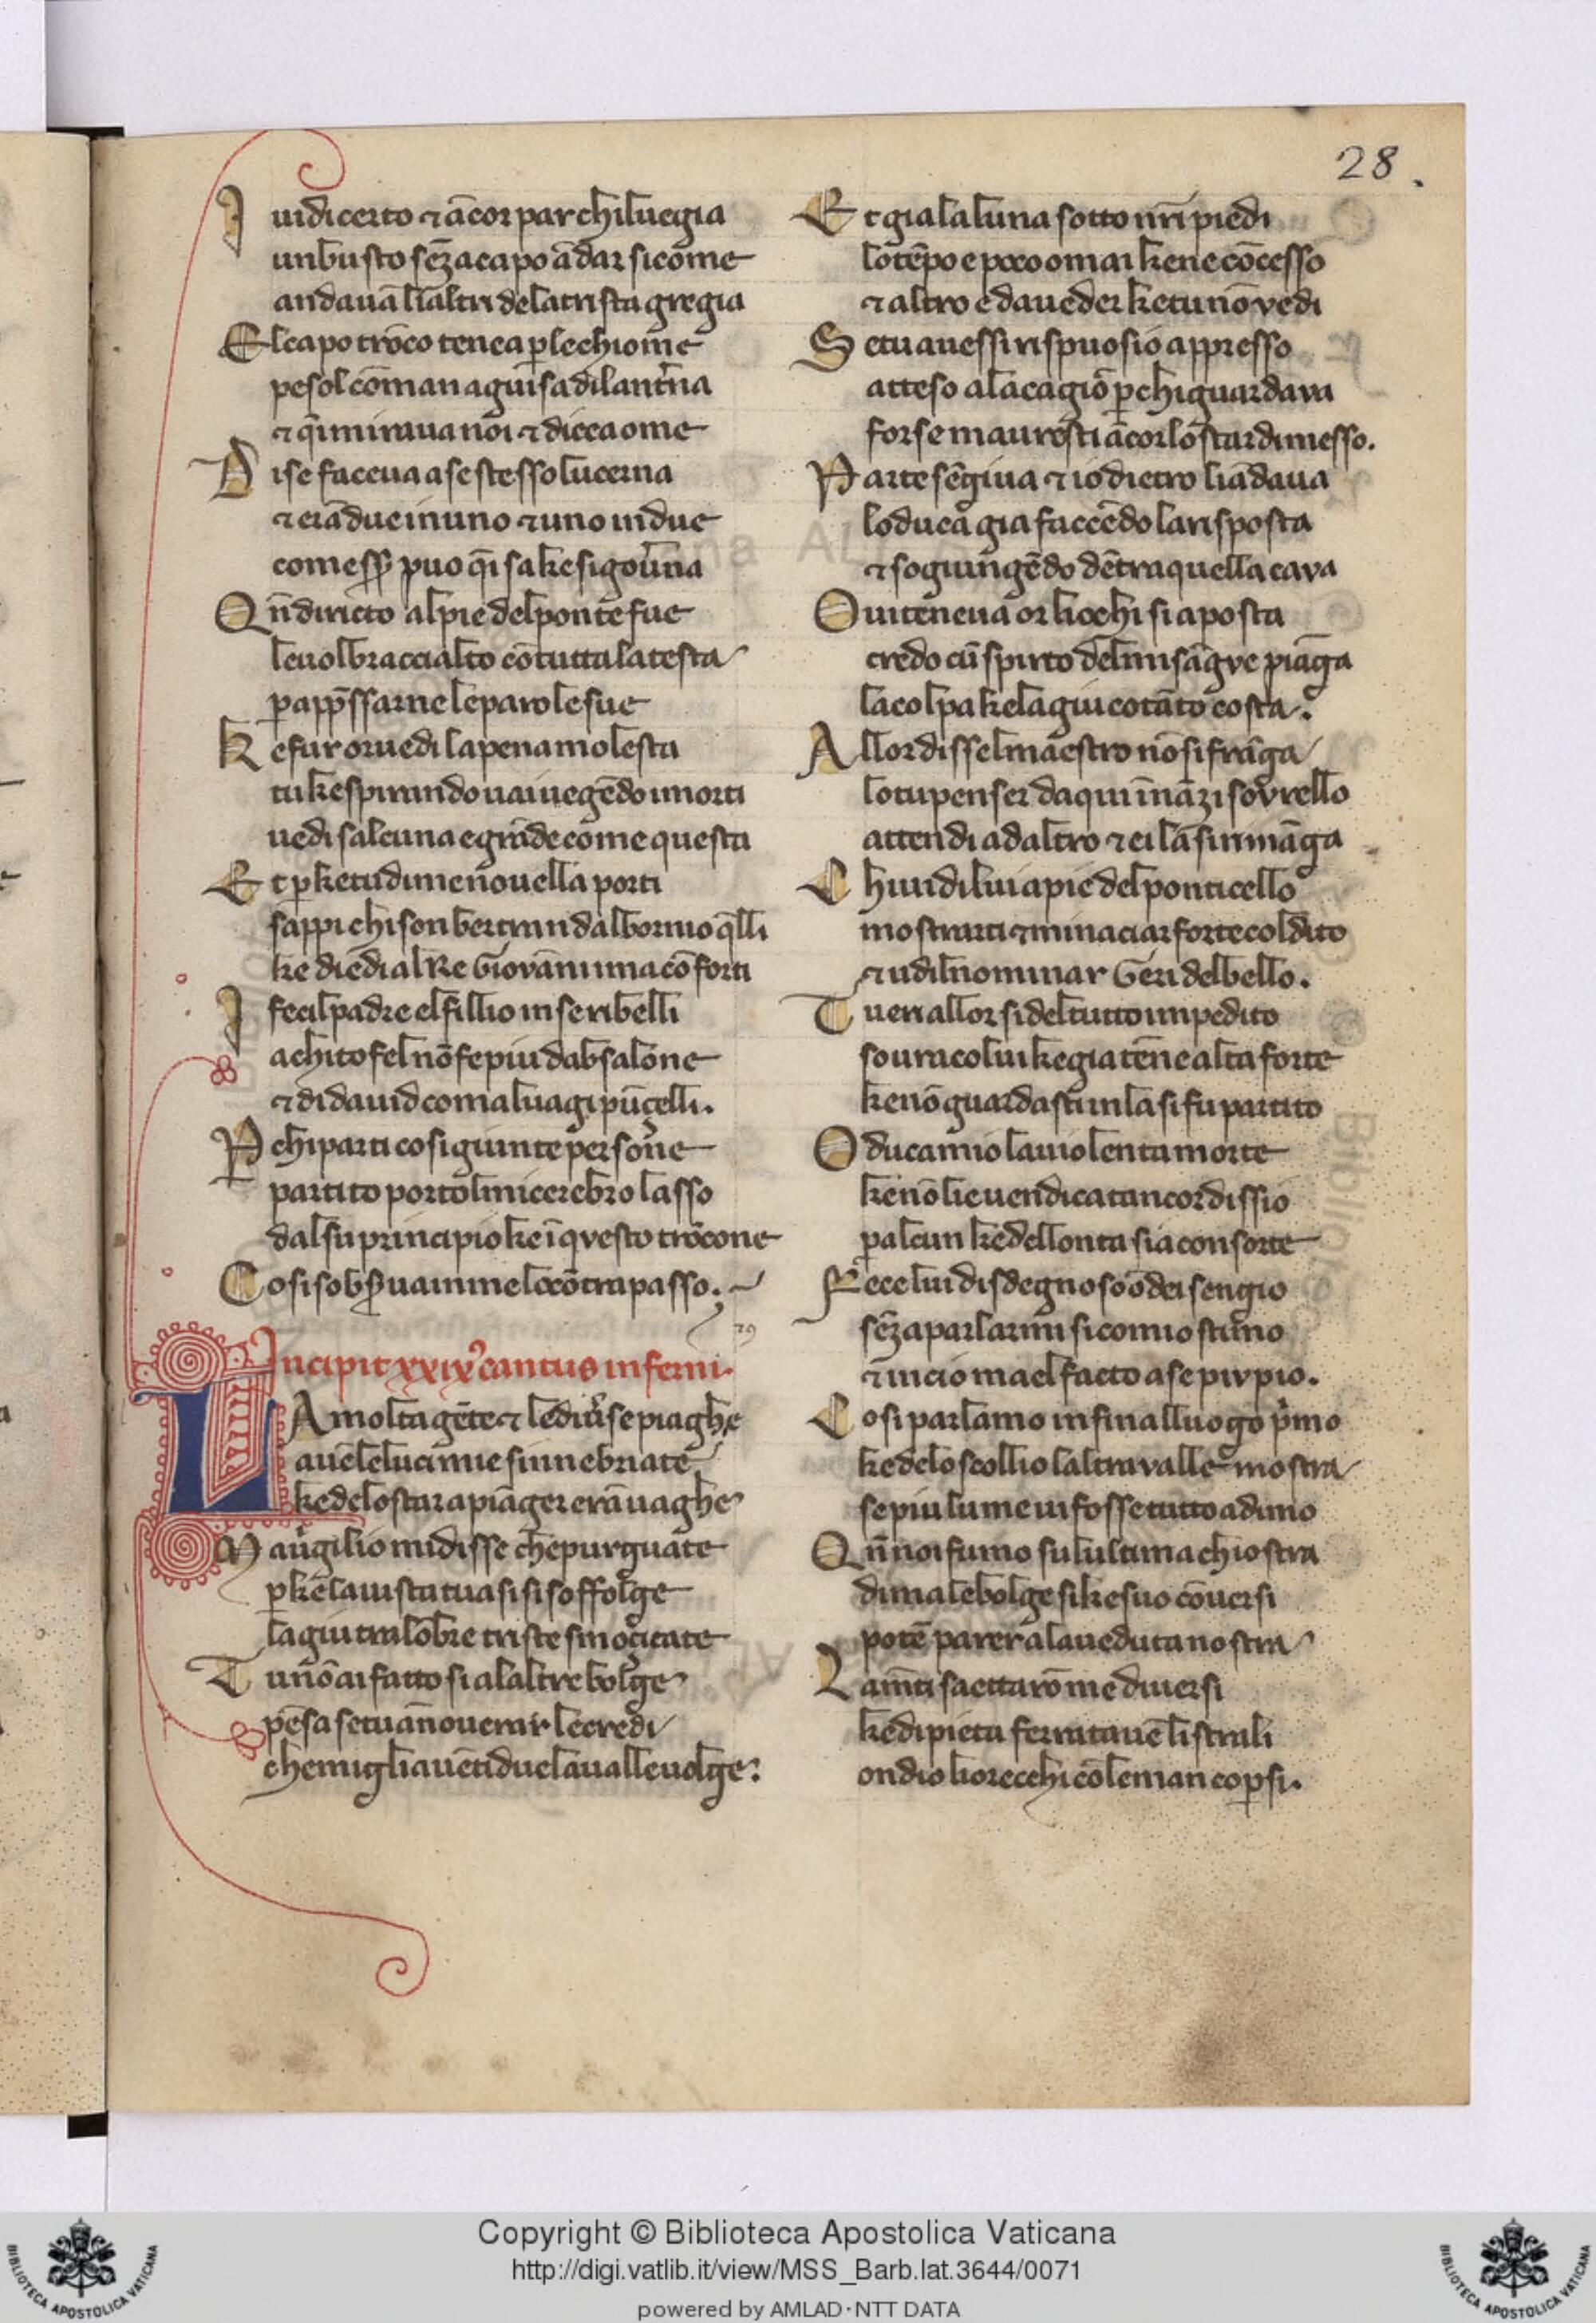 28.
I uidi certo ⁊ ācor par chiluegia
un busto sēza capo ādar si come
andauā li altri de la trista gregia
El capo trōco tenea ꝑ le chiome
pesol cō man a guisa di lant̄na
⁊ q̄i miraua noi ⁊ dicea ome
Di se faceua a se stesso lucerna
⁊ erā due in uno ⁊ uno in due
come ess̄ puo q̄i sa ke si gou̅na
Qn̄ diricto al pie del ponte fue
leuol braccialto cō tutta la testa
ꝑ app̄ssarne le parole sue
Ke fur or uedi la pena molesta
tu ke spirando uai uegēdo i morti
uedi salcuna e grāde come questa
Et ꝑ ke tu di me nouella porti
sappi chi son bertrin dal bornio q̄lli
ke diedi al Re Giouāni ma cōforti
I feci l padre el fillio in se ribelli
achitofel nō fe piu dabsalone
⁊ di dauid co maluagi pūcelli.
P chi parti cosi giunte persone
partito porto l mi cerebro lasso
dal su principio ke ī qvesto trōcone
Cosi sobs̄ua in me lo cōtrapasso.
29
Incipit xxix° cantus inferni.
LA molta gēte ⁊ le diu̅se piaghe
auē le luci mie si innebriate
ke de lo star a piāger erā uaghe
Ma uīgilio mi disse che pur guate
ꝑ ke la uista tua si si soffolge
la giu tra lōbre triste smoçicate
Tu nō ai fatto si a laltre bolge
pēsa se tu ānouerar le credi
che miglia uēti due la ualle uolge:
Et gia la luna sotto nr̄i piedi
lo tēpo e poco omai ke ne cōcesso
⁊ altro e da ueder ke tu nō vedi
Se tu auessi rispuosio appresso
atteso a la cagiō ꝑ chi guardava
forse mauresti ācor lo star dimesso.
Parte sēgiua ⁊ io dietro li ādaua
lo duca gia faccēdo la risposta
⁊ sogiungēdo dētra quella cava
Oui teneua or liocchi si a posta
credo cū spirto del mi sāgve piāga
la colpa ke la giu cotāto costa.
Allor disse l maestro nō si frāga
lo tu penser da qui ināzi sovrello
attendi ad altro ⁊ ei la si rimāga
Chi uidi lui a pie del ponticello
mostrarti ⁊ minaciar forte col dito
⁊ udil nominar Geri del bello.
Tu eri allor si del tutto impedito
soura colui ke gia tēne alta forte
ke nō guardasti in la si fu partito
O duca mio la uiolenta morte
ke nō lie uendicata ancor dissio
ꝑ alcun ke dellonta sia consorte
Fece lui disdegnoso ōdei sen gio
sēza parlarmi si comio stimo
⁊ in cio ma el facto a se piu pio.
Cosi parlamo infin al luogo p̄mo
ke de lo scollio laltra valle mostra
se piu lume ui fosse tutto ad imo
Qn̄ noi fumo su lultima chiostra
di malebolge si ke suo cōuersi
potē parer a la ueduta nostra
Lamēti saettarō me diuersi
ke di pieta ferrati auē li strali
ondio liorecchi cō le man coꝑsi.
Copyright © Biblioteca Apostolica Vaticana
http://digi.vatlib.it/view/MSS_Barb.lat.3644/0071
powered by AMLAD·NTT DATA
BIBLIOTECA APOSTOLICA VATICANA
BIBLIOTECA APOSTOLICA VATICANA